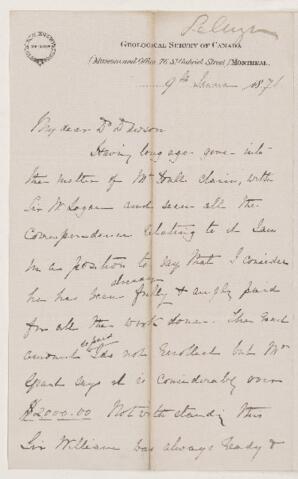 Selwyn
GEOLOGICAL SURVEY OF CANADA,
(Museum and Office, 76 St. Gabriel Street,) MONTREAL,
9th January 1871
My dear Dr Dawson
Having long ago gone into
the matter of Mr claim, with
Sir W Logan and seen all the
correspondence relating to it I am
in a position to say that I consider
he has been already fully & amply paid
for all the work done. The exact
amount paid I do not recollect but Mr
Grant says it is considerably over
$2000.00 Notwithstanding this
Sir William was always ready &